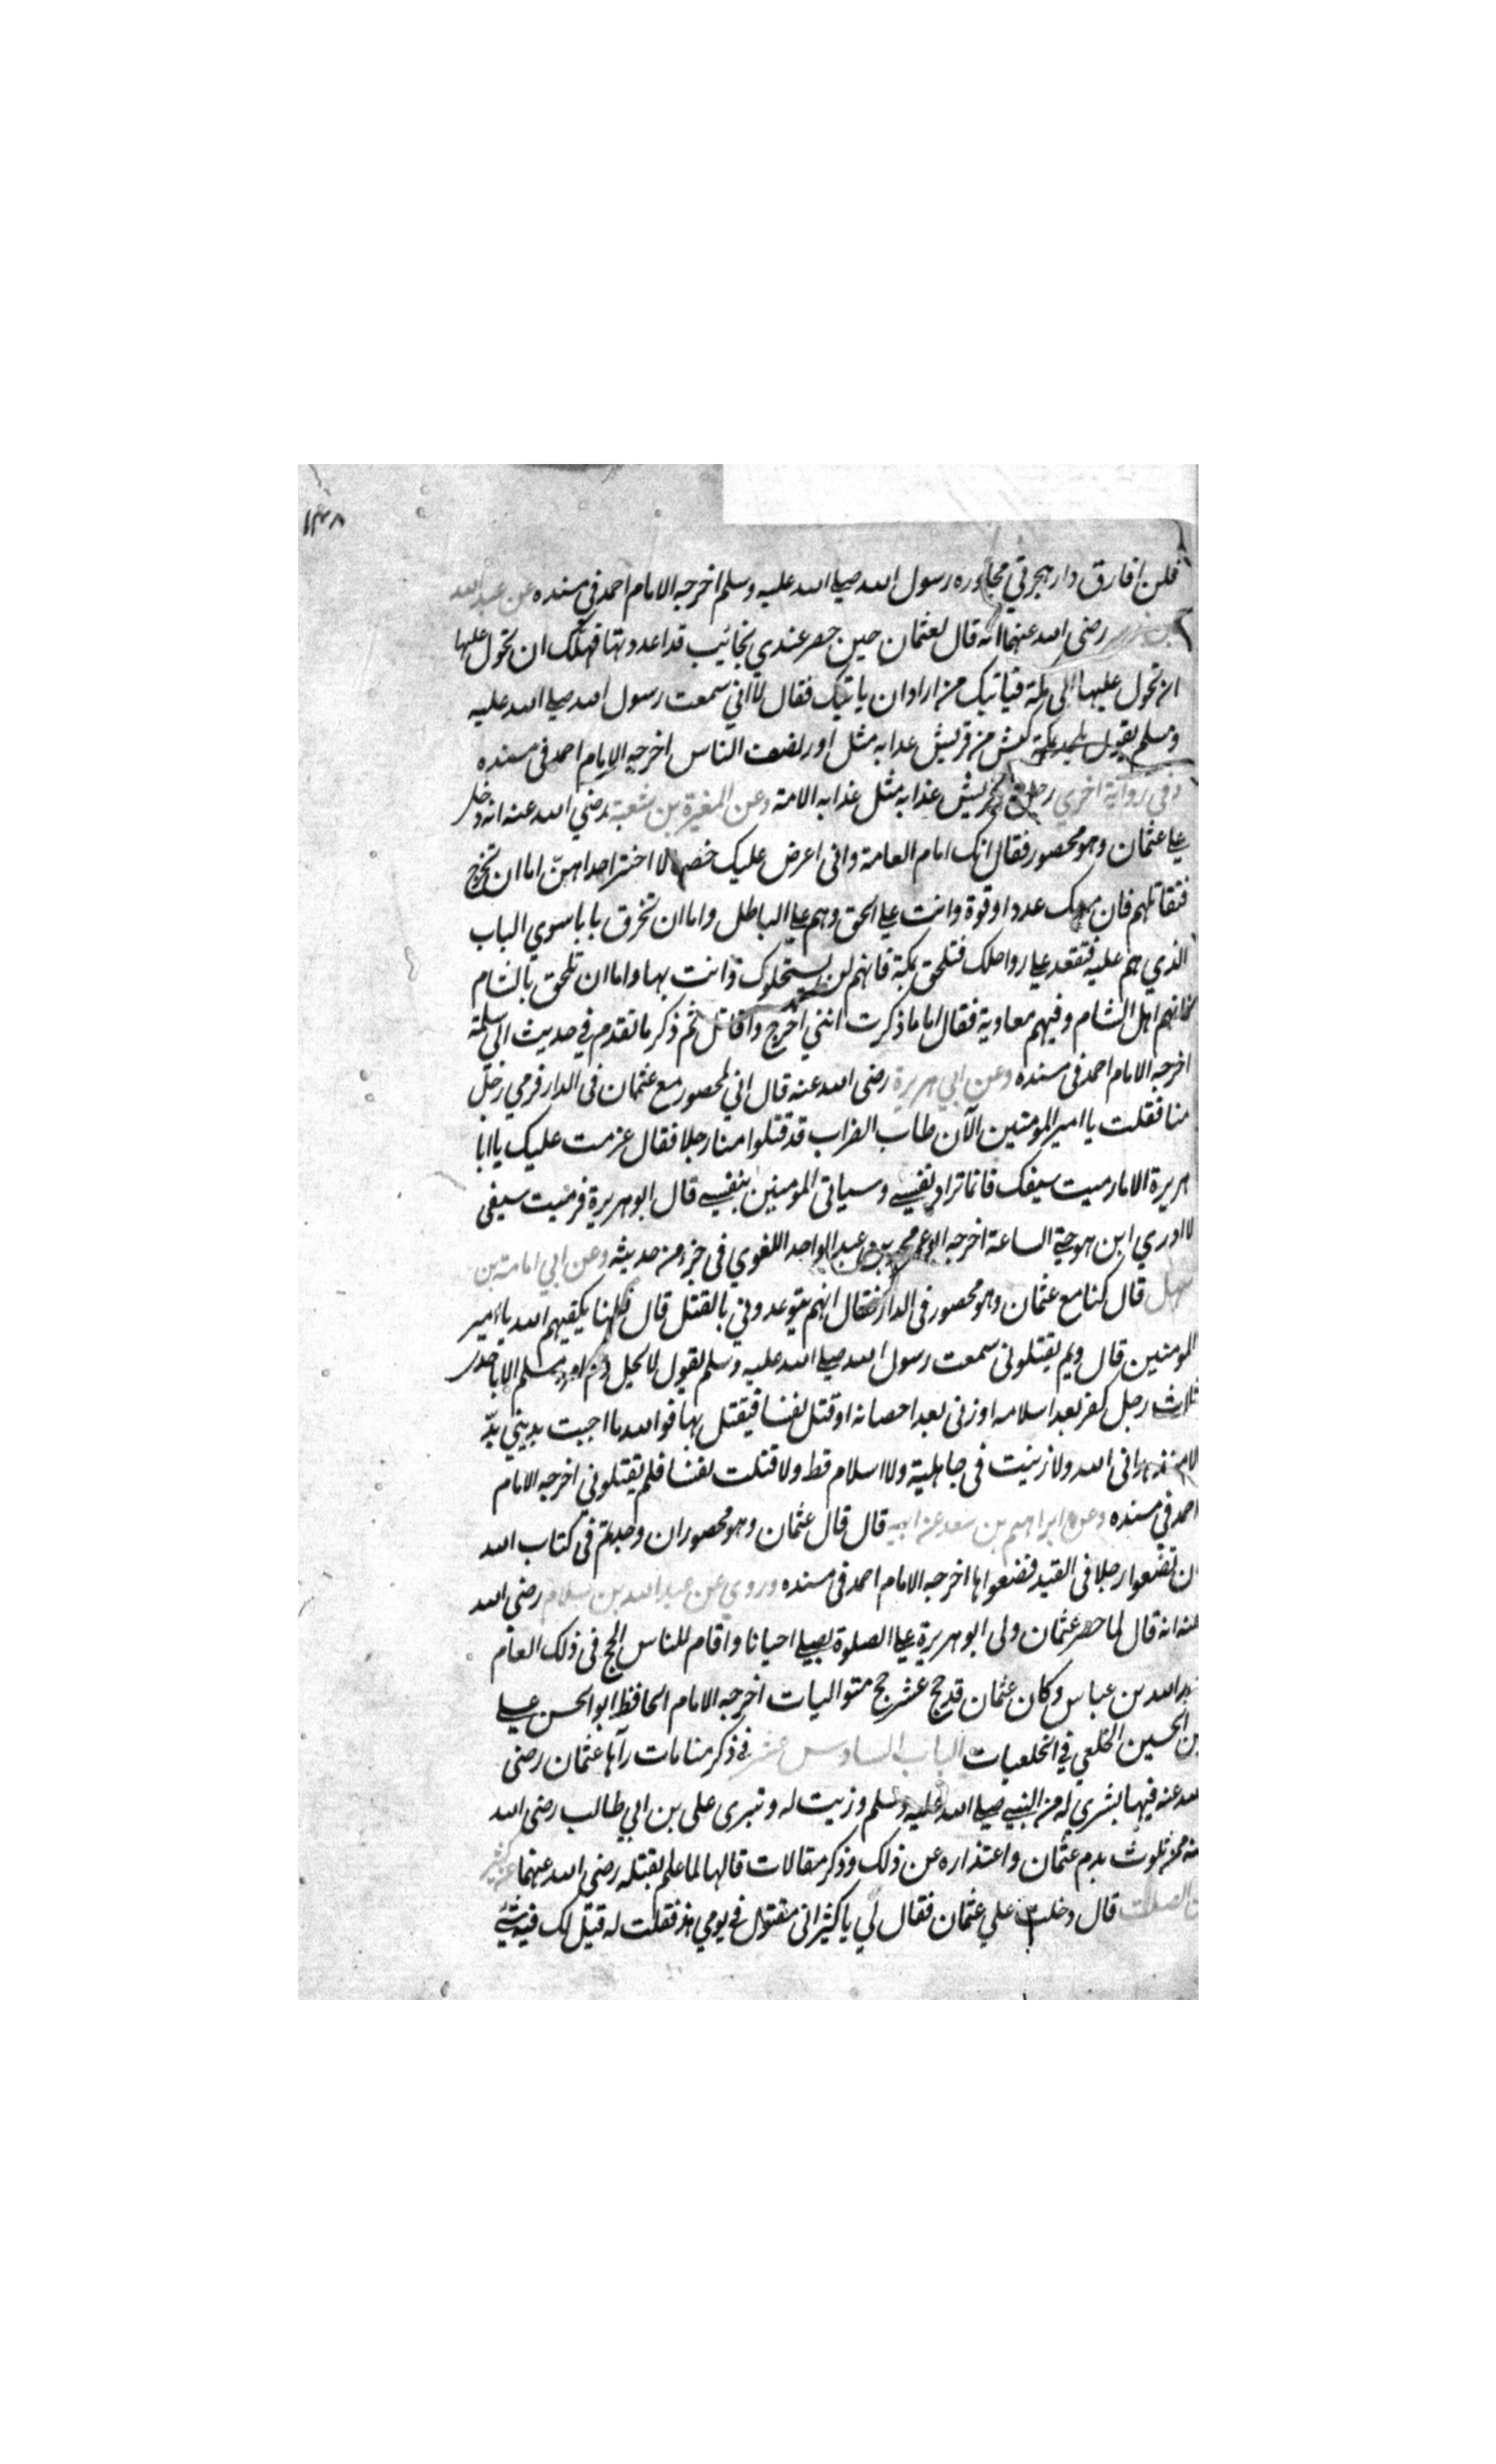 ١٣٨
فلن افارق دار هجرتي مجاوره رسول الله صلى الله عليه وسلم اخرجه الامام احمد في مسنده عن عبد الله
بن رضى الله عنهما انه قال لعثمان حين حصر عندي نجائيب قد اعددتها فهل لك ان تحول عليها
ان تحول عليها الى مكة فيأتيك من اراد ان ياتيك فقال لا اني سمعت رسول الله صلى الله عليه
وسلم يقول يلحد بمكة كبش من قريش عذابه مثل اوزار نصف الناس اخرجه الامام احمد في مسنده
وفي رواية اخري رجل من قريش عذابه مثل عذابه الامة وعن المغيرة بن شعبة رضي الله عنه انه دخل
على عثمان وهو محصور فقال انك امام العامة وانى اعرض عليك خصالا اختر احداهن اما ان تخرج
فتقاتلهم فان معك عددا وقوة وانت على الحق وهم على الباطل واما ان تخرق بابا سوي الباب
الذي هم عليه فتقعد على رواحلك فتلحق بمكة فانهم لن يستحلوك وانت بها واما ان تلحق بالشام
فانهم اهل الشام وفيهم معاوية فقال اما ما ذكرت انني اخرج واقاتل ثم ذكر ما تقدم في حديث ابي سلمة
اخرجه الامام احمد في مسنده وعن ابي هريرة رضى الله عنه قال اني لمحصور مع عثمان في الدار فرمي رجل
منا فقلت يا امير المومنين الآن طاب الضراب قد قتلوا منا رجلا فقال عزمت عليك يا ابا
هريرة الا ما رميت سيفك فانما تراد نفسي وساقي المومنين بنفسي قال ابو هريرة فرميت سيفي
لا ادري اين هو حتى الساعة اخرجه ابو عمر محمد بن عبد الواحد اللغوي في جزء من حديثه وعن ابي امامة بن
سهل قال كنا مع عثمان وهو محصور في الدار فقال انهم يتوعدوني بالقتل قال قلنا يكفيهم الله يا امير
المومنين قال ولم يقتلونى سمعت رسول الله صلى الله عليه وسلم يقول لا يحل دم امرء مسلم الا باحدى
ثلاث رجل كفر بعد اسلامه او زنى بعد احصانه او قتل نفسا فيقتل بها فوالله ما احببت بديني بدّ
لا منذ هداني الله ولا زنيت في جاهلية ولا اسلام قط ولا قتلت نفسا فلم يقتلوني اخرجه الامام
احمد في مسنده وعن ابراهيم بن سعد عن ابيه قال قال عثمان وهو محصور ان وجدتم في كتاب الله
ان تضعوا رجلا في القيد فضعوها اخرجه الامام احمد في مسنده وروي عن عبد الله بن سلام رضى الله
عنه انه قال لما حصر عثمان ولى ابو هريرة على الصلوة يصلي احيانا واقام للناس الحج في ذلك العام
عبد الله بن عباس وكان عثمان قد حج عشر حج متواليات اخرجه الامام الحافظ ابو الحسن علي
بن الحسين الخلعي في الخلعيات الباب السادس عشر في ذكر منامات رآها عثمان رضى
الله عنه فيها بشري له من النبي صلى الله عليه وسلم وزيت له وتبري على بن ابي طالب رضى الله
عنه من تلوث بدم عثمان واعتذاره عن ذلك وذكر مقالات قالها لما علم بقتله رضى الله عنهما عن كثير
بن الصلت قال دخلت علي عثمان فقال لي يا كثير انى مقتول في يومي هذ فقلت له قيل لك فيه شئ